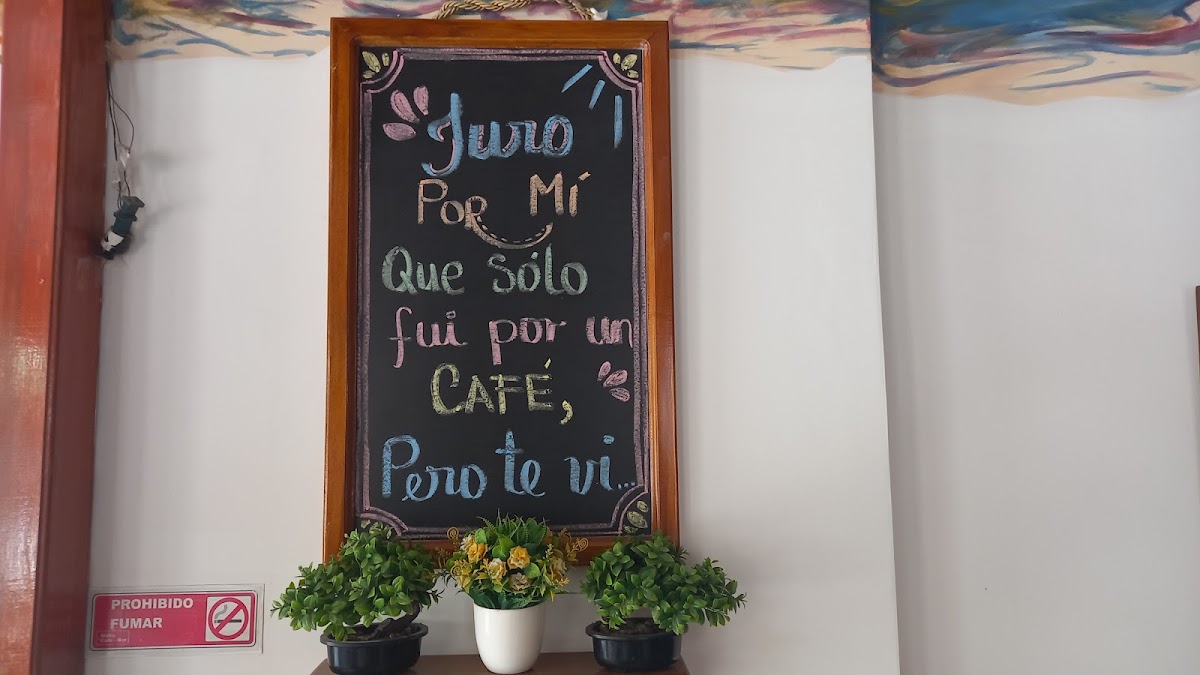 Juro
Por Mí
Que sólo
fui por un
CAFÉ,
Pero te vi...
PROHIBIDO
FUMAR